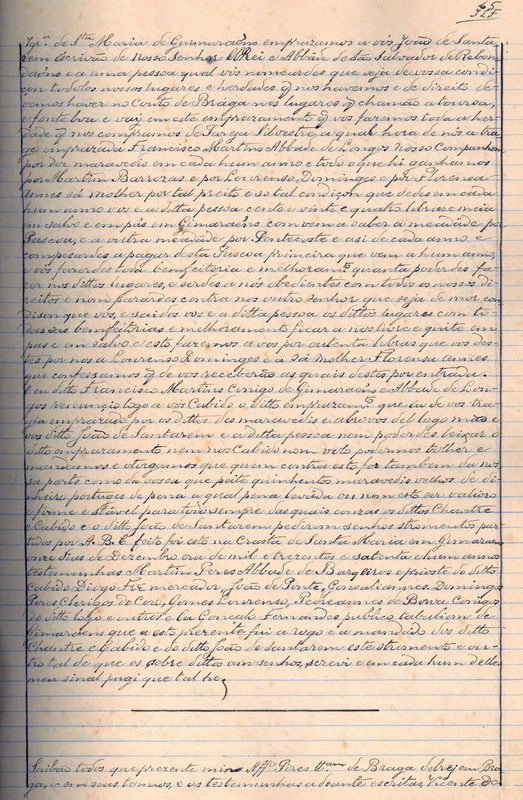 325
Igrª de Stª Maria de Guimarães emprazamos a vós João de Santa
rem Escrivão de Nosso Senhor ElRei e Abbade de São Salvador de Rebor
dãos e a uma pessoa qual vós nomeardes que seja de vosa condi
çon todolos nossos lugares e herdades q̃ nos havemos e de direito de
vemos haver no Couto de Braga nos lugares q̃ chamão
e Fonte Cova e vai em este emprazamento q̃ vos faremos toda a her
dade q̃ nos compramos de Tareja Silvestre a qual hora de nós a tra
ge emprazada Francisco Martins Abbade de Longos Nosso Companhon
por dez maravedis em cada hum anno e todo o que hi ganhamos
por Martim Barrozas e por Lourenso Domingos e por Florensa
Annes sa molher por tal preito e so tal condiçon que dedes em cada
hum anno vos e a ditta pessoa cento e vinte e quatro libras e meia
em salvo e em pas em Gimaraens convem a saber a meadade por
Pascoa, e a outra meadade por Pentecoste e asi de cada anno e
comesardes a pagar desta Pascoa primeira que vem a hum anno,
e vós farerdes toda bemfeitoria e melhoramto quanta poderdes fa
zer nos dittos lugares, e serdes a nós obedientes com todos os nossos di
reitos e nom parardes contra nos outro senhor que seja de mor con
dison que vós, e saidos vos e a ditta pessoa os dittos lugares com to
das sas bemfeitorias e melhoramento ficar a nos livre e quite em
pas e em salvo e esto faremos a vos por outenta libras que vos des
tes por nos a Lourenso Domingos e a sá molher Florensa annes
que confessamos q̃ de vos receberão as quais destes por entrada.
E eu ditto Francisco Martins Conigo de Gimaraens e Abbade de Lon
gos renunçio logo a vos Cabido o ditto emprazamto que eu de vos tra
gia emprazado por os dittos des maravedis e abro vos del logo mão e
vos ditto João de Santarem e a ditta pessoa nom poderdes leixar o
ditto emprazamento nem nos Cabido nom volo podermos tolher e
mandamos e otorgamos que quem contra esto for tambem da nos
sa parte como da vossa que peite quinhentos maravedis velhos de di
nheiro portuges de pena a qual pena levada ou nom esto ser valioso
e firme e stavel para todo sempre das quais couzas os dittos Chantre
e Cabido e o ditto João de Santarem pedirom senhos stromentos par
tidos por A. B. C. feito foi esto na Crasta de Santa Maria em Gimaraens
onze dias de Dezembro era de mil e trezentos e satenta e hum annos
testemunhas Martim Peres Abbade de Barqeiros e prioste do ditto
Cabido Diogo Fiz mercador, João de Ponte, Gonsalianes. Domingos
Peres Clerigos do Coro, Gomes Lourenso, Pedreannes de Borva Conigos
do ditto logo e outros e Eu Gonçalo Fernandes publico Tabaliam de
Gimaraens que a esto prezente fui a rogo e a mandado dos ditto
Chantre e Cabido e do ditto João de Santarem este stromento e ou
tro tal de que os sobre dittos am senhos, screvi e em cada hum delles
meu sinal pugi que tal he
Saibão todos que prezente mim Affº Pires tbam de Braga delrej em Bra
ga, e em seus termos, e as testemunhas adeante escritas Vicente Do